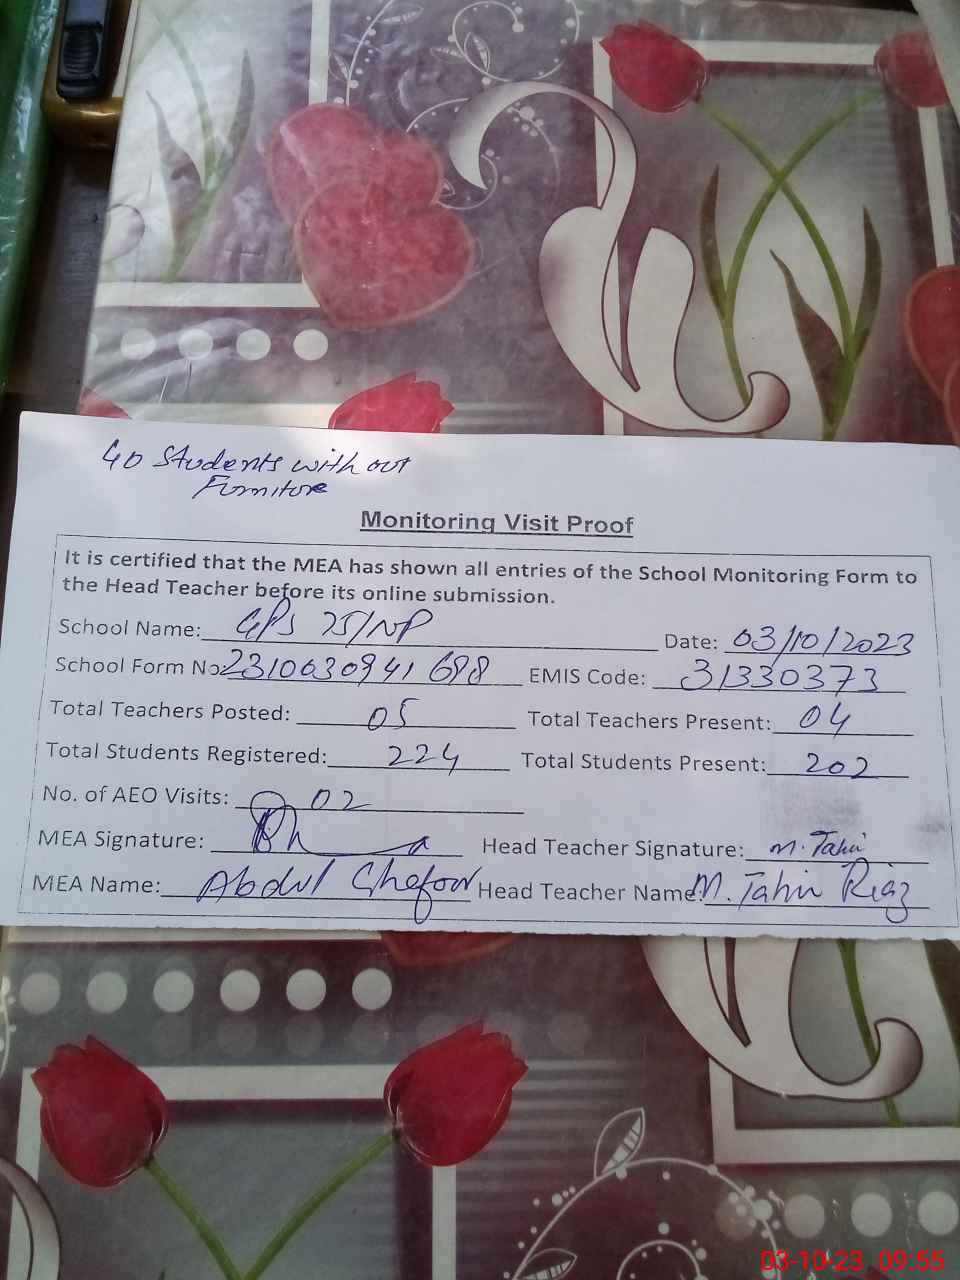 40 Students with out
Furniture
Monitoring Visit Proof
It is certified that the MEA has shown all entries of the School Monitoring Form to
the Head Teacher before its online submission.
School Name: GPS 75/NP Date: 03/10/2023
School Form No: 2310030941 698 EMIS Code: 31330373
Total Teachers Posted: 05 Total Teachers Present: 04
Total Students Registered: 224 Total Students Present: 202
No. of AEO Visits: 02
MEA Signature: Head Teacher Signature: M. Tahir
MEA Name: Abdul Ghafoor Head Teacher Name: M. Tahir Riaz
03-10-23 09:55